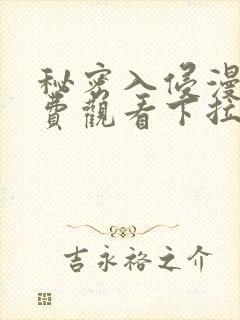 秘密入侵漫
費觀看下拉
吉永裕之介